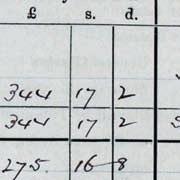 £ s. d.
344 17 2
344 17 2
275. 16 8